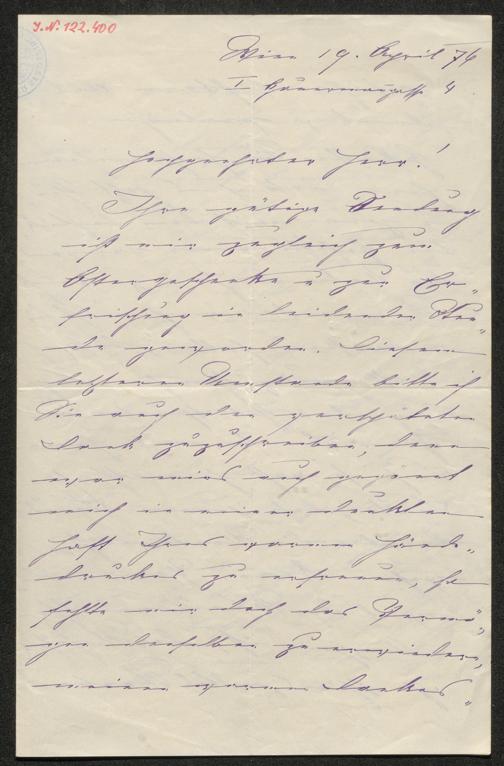 J.N. 122.400
Wien 19. April 74
I 4
Hochgeehrter Herr!
Ihre gütige Sendung
ist mir zugleich zum
Ostergeschenke u zur Er-
frischung in leidender Stun-
de geworden. Diesem
letzteren Umstande bitte ich
Sie auch den verspäteten
Dank zuzuschreiben, denn
war mirs auch gegönnt
mich in meiner dunklen
Haft Ihres warmen Hände-
druckes zu erfreuen, so
fehlte mir doch das Vermö-
gen denselben zu erwiedern,
meines warmen Dankes